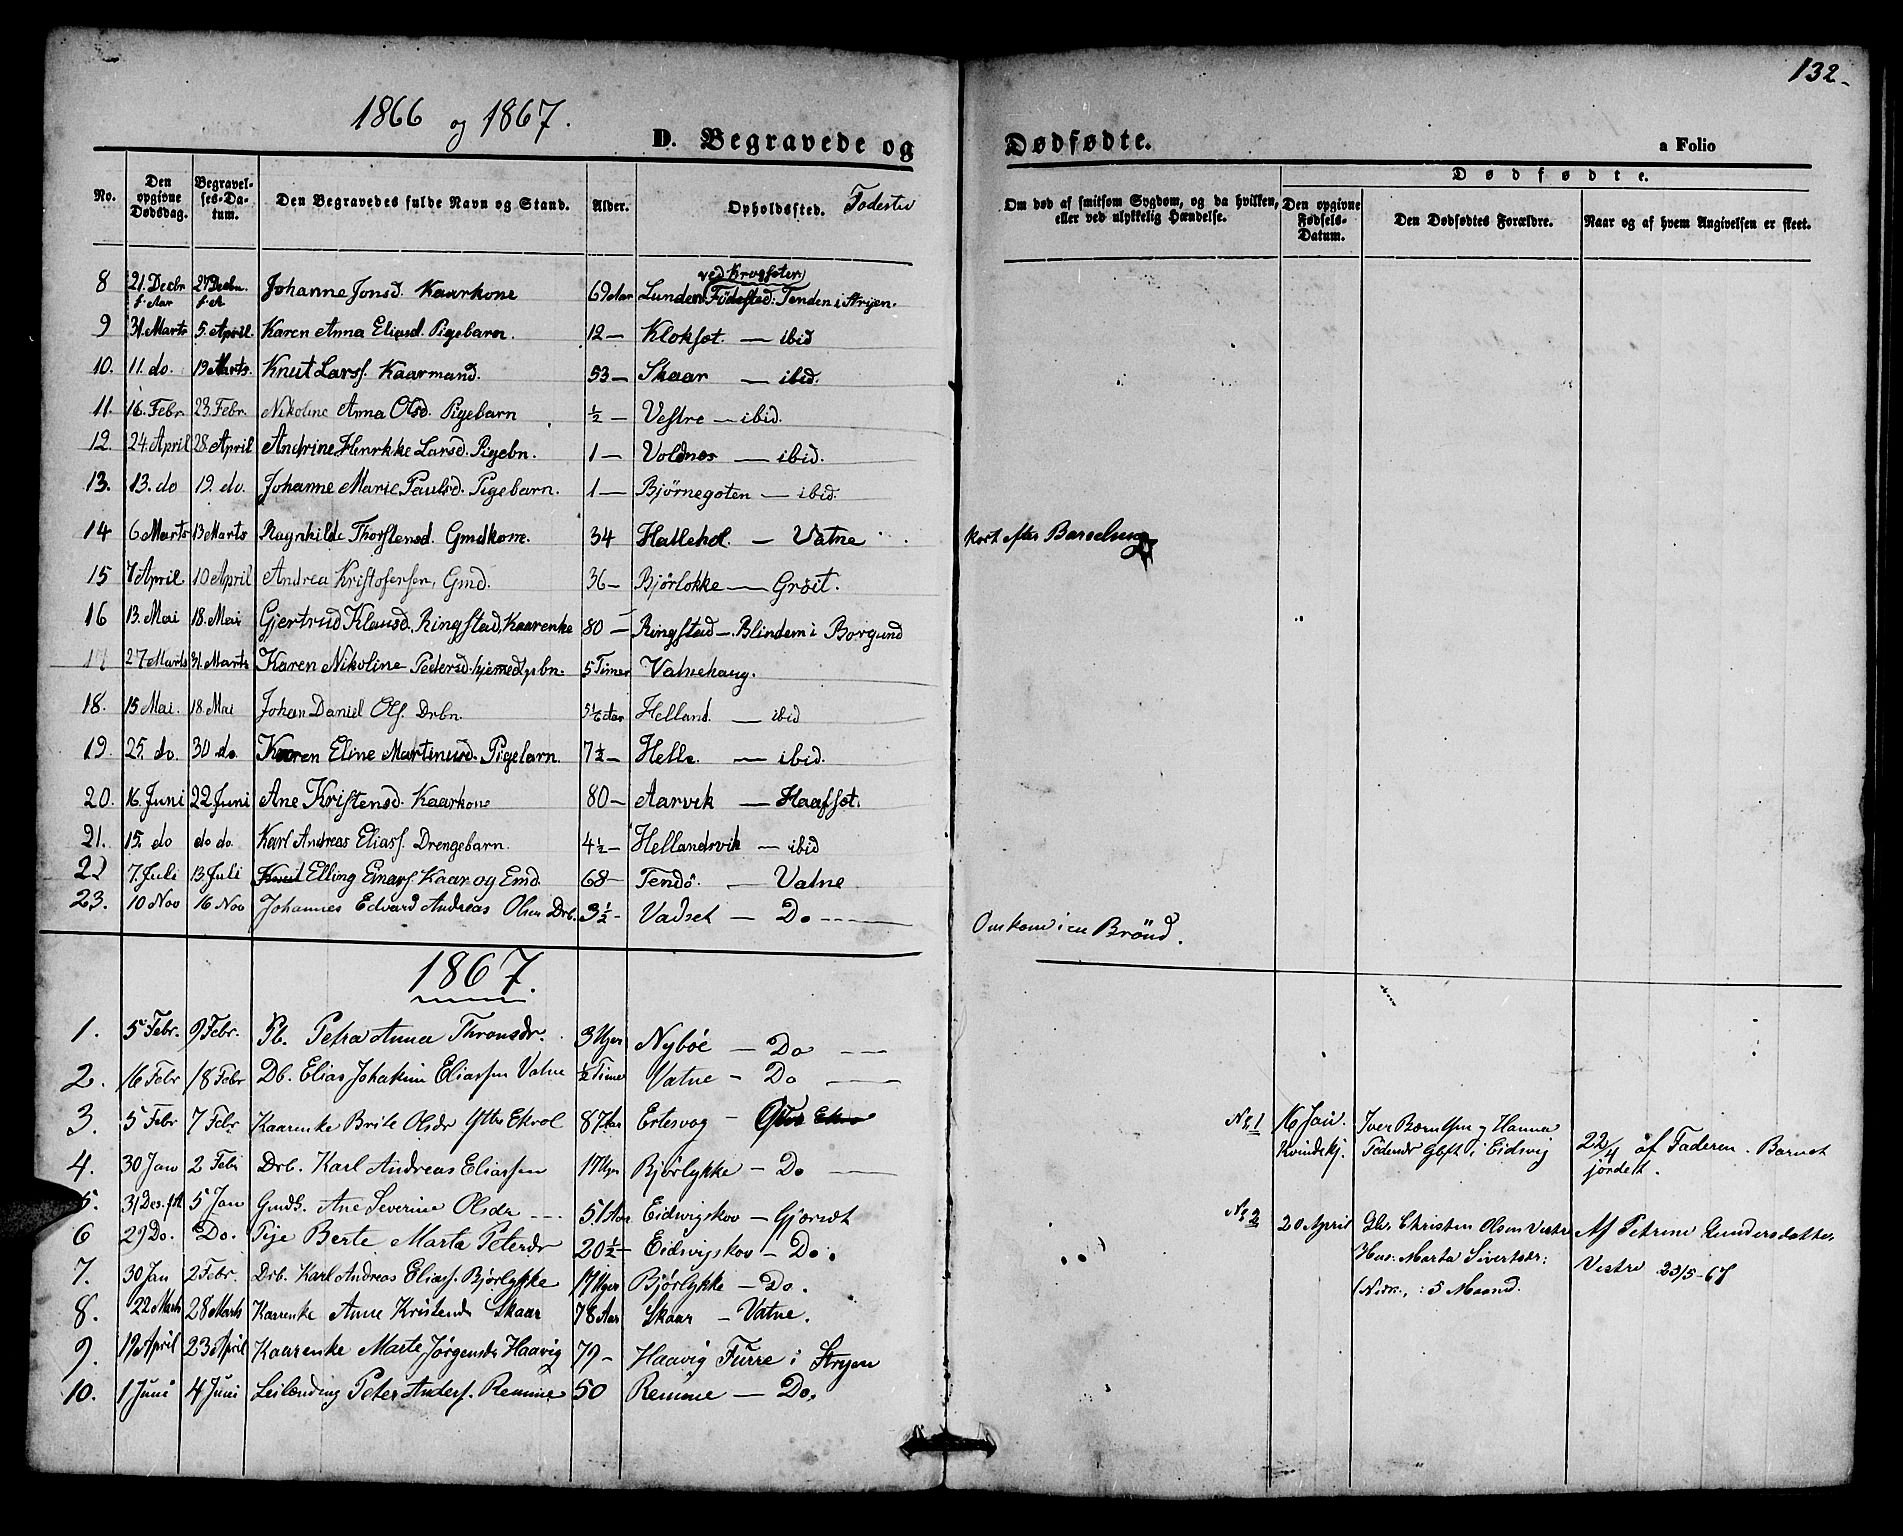 132.
1866 og 1867.
D. Begravede og Dødfødte.
a Folio
No.
Den opgivne Dødsdag.
Begravelses-Datum.
Den Begravedes fulde Navn og Stand.
Alder.
Opholdssted. Fødested
Om død af smitsom Sygdom, og da hvilken, eller ved ulykkelig Hændelse.
Dødfødte.
Den opgivne Fødsels-Datum.
Den Dødfødtes Forældre.
Naar og af hvem Angivelsen er skeet.
ved Krogsæter
8 21. Decbr f. Aar 27 Decbr. f. A Johanne Jonsd. Kaarkone 69 Aar Lunden Födested: Tenden i Stryen.
9 31. Marts 5. April Karen Anna Eliasd. Pigebarn. 12 — Kloksæt. — ibid
10. 11. do. 19 Marts. Knut Larss. Kaarmand. 53 — Skaar — ibid.
11. 16. Febr 23. Febr. Nikoline Anna Olsd. Pigebarn ½ — Vestre — ibid.
12. 24. April 28. April Andrine Henrikke Larsd. Pigebn. 1 — Voldnes — ibid.
13. 13. do 19. do. Johanne Marie Paulsd. Pigebarn. 1 — Björnegoten — ibid.
14 6 Marts 13 Marts Ragnhilde Thorstensd. Gmdkone. 34 Hallehol. — Vatne kort efter Barselseng
15 7 April 10 April Andrea Kristofersen, Gmd. 36 — Bjørlokke — Gröit.
16 13. Mai 18. Mai Gjertrud Klausd. Ringstad, Kaarenke 80 — Ringstad — Blindem i Borgund
17 27 Marts 31. Marts Karen Nikoline Pedersd. hjemedpbn. 5 Timer Vatnehaug.
18. 15 Mai. 18. Mai Johan Daniel Ols. Drbn. 5½ Aar Helland. — ibid
19. 25. do. 30 do Karen Eline Martinusd. Pigebarn. 7½ — Helle. — ibid.
20. 16. Juni 22 Juni Ane Kristensd. Kaarkone 80 — Aarvik — Haafsæt.
21. 15. do do do. Karl Andreas Eliass. Drengebarn. 4½ — Hellandsvik — ibid
22 7. Juli 13. Juli Elling Einars. Kaar og Emd. 68 — Tendö. — Vatne
23. 10 Nov 16 Nov Johannes Edvard Andreas Olsen Drb. 3½ — Vadset — Do — Omkom i en Brönd.
1867.
1. 5 Febr. 9 Febr. Pb. Petra Anna Thronsdr. 3 Uger Nybøe — Do —
2. 16 Febr 18 Febr Db. Elias Johakim Eliassen Vatne ½ Time Vatne — Do —
3. 5 Febr 7 Febr Kaarenke Brite Olsdr Ytter Ekrol 87 Aar Ertesvog —
4. 30 Jan 2 Febr Drb. Karl Andreas Eliassen 17 Uger Bjørlykke — Do —
5. 31 Des. 5 Jan Gmdk. Ane Severine Olsdr 51 Aar Eidvigskov — Gjærsdt
6 29 Do. Do. Pige Berte Marta Petersdr 20½ — Eidsvigskov — Do.
7. 30 Jan 2 Febr. Drb. Karl Andreas Eliass. Bjørlykke 17 Uger Bjørlykke — Do.
8. 22 Marts 28 Marts Kaarenke Anne Kristensdr Skaar 78 Aar Skaar — Vatne.
9. 19 April 23 April Kaarenke Marte Jørgensdr Haavig 79 — Haavig Furre i Stryen
10. 1 Juni 4 Juni Leilænding Peter Anders. Remme 50 Remme — Do.
No 1 16 Jan. Kvindekj. Iver Berntsen og Hanna Pedersdr Gbft i Eidsvig 22/4 af Faderen. Barnet jordet.
No 2 20 April Gbr. Christen Olsen Vestre Hus. Marta Sivertsdr: : 5 Maand. Af Petrine Gundersdatter Vestre 23/5-67